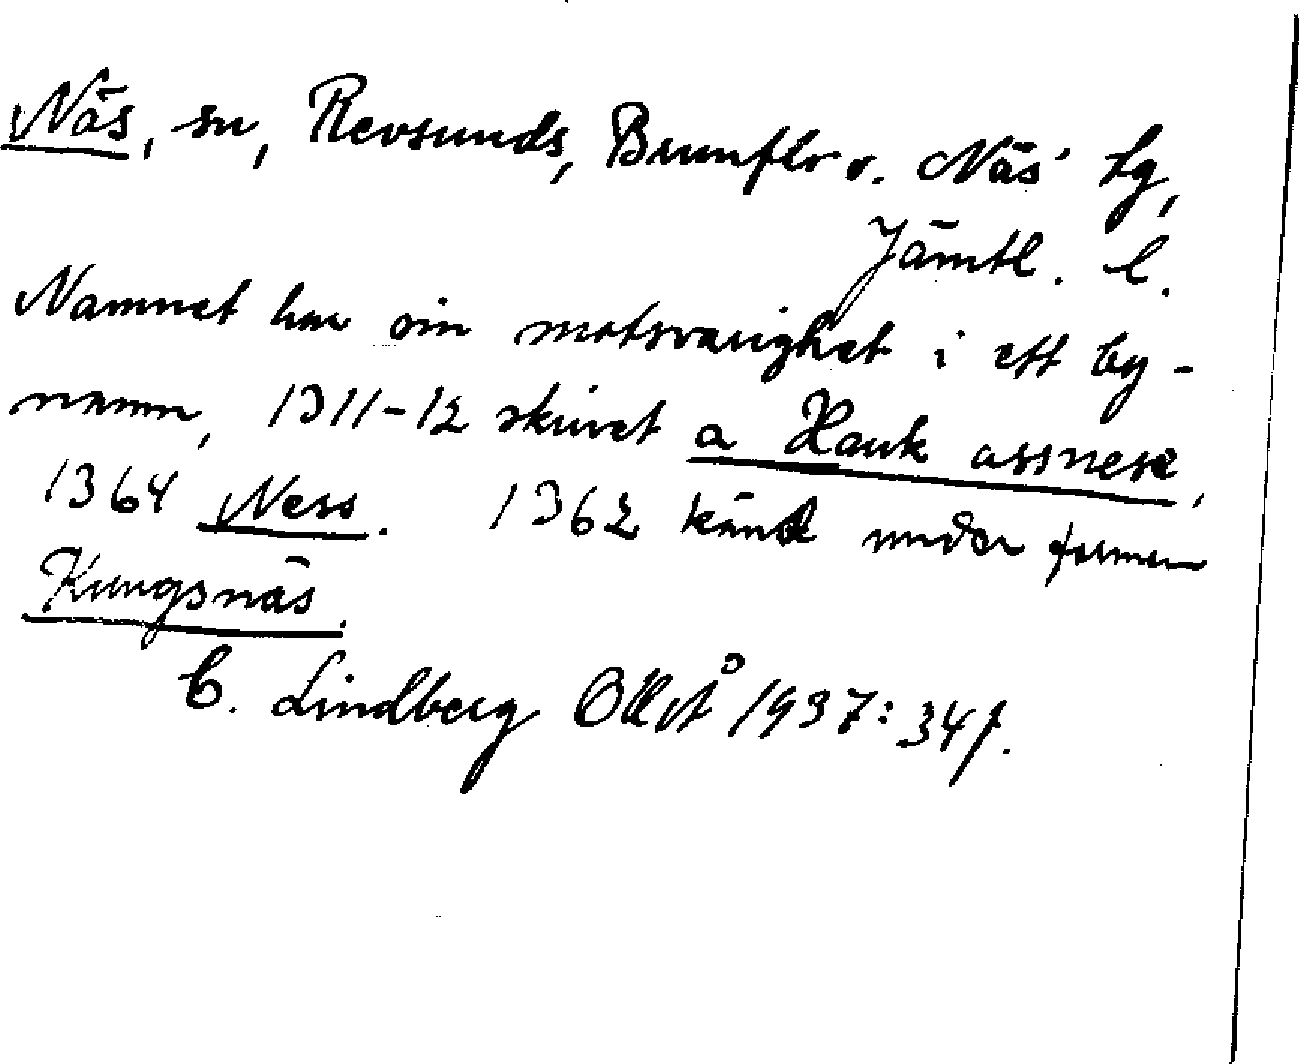 Näs, sn, Revsunds, Brunflo o. Näs tg,
Jämtl. l.
Namnet har sin motsvarighet i ett by-
namn, 1311-12 skrivet a Hauk assnese,
1364 Ness. 1362 känt under formen
Kungsnäs.
C. Lindberg 1937: 34f.